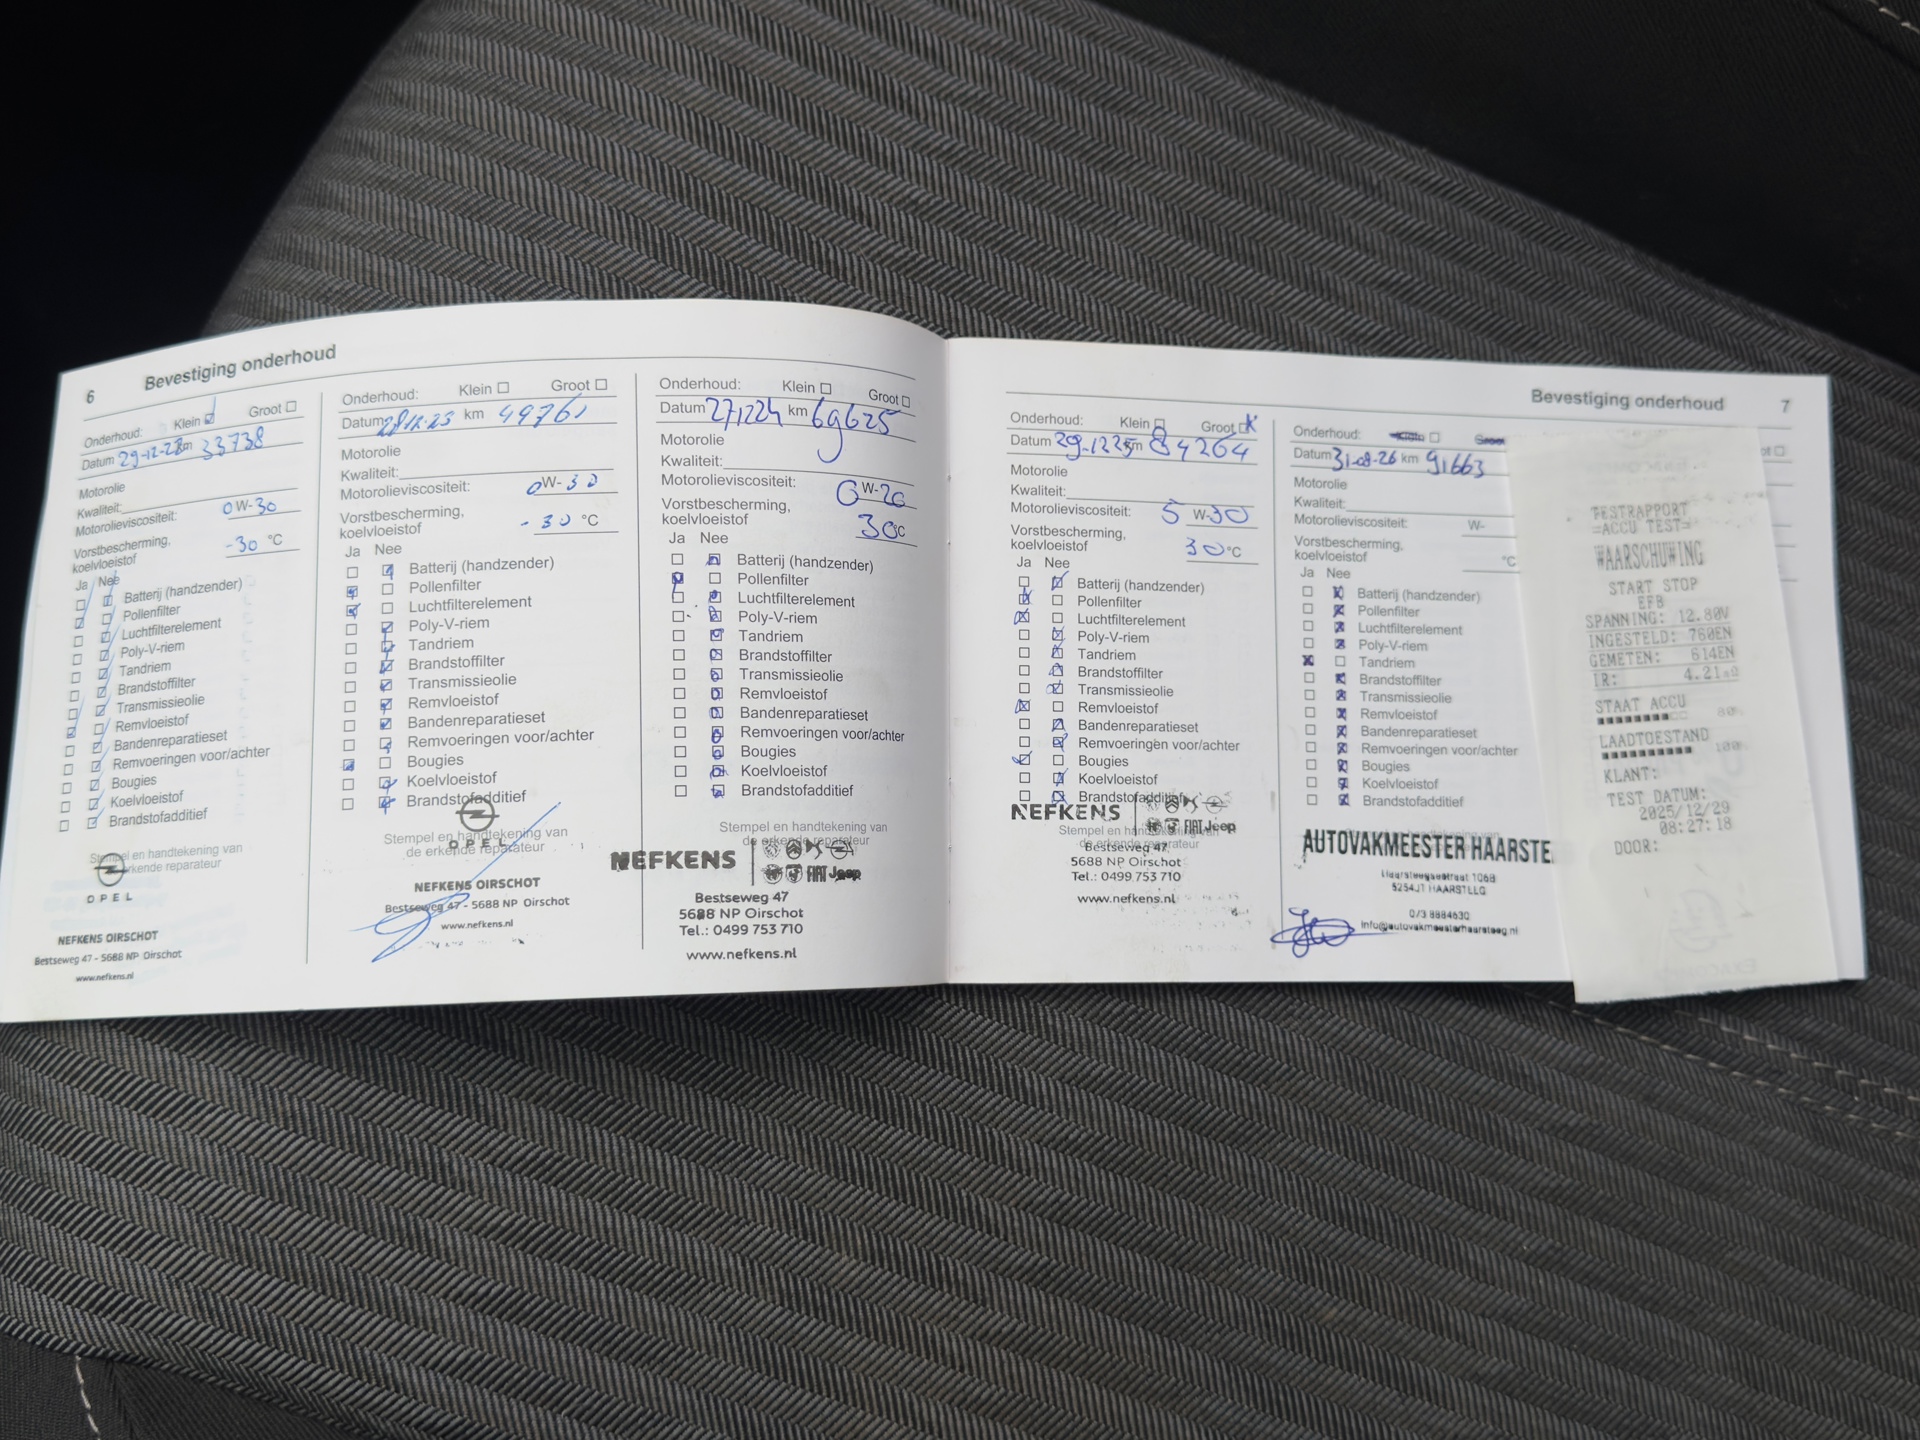 6 Bevestiging onderhoud
Onderhoud: Klein Groot
Datum 29-12-22 km 33738
Motorolie
Kwaliteit:
Motorolieviscositeit: 0 W-30
Vorstbescherming,
koelvloeistof -30 °C
Ja Nee
Batterij (handzender)
Pollenfilter
Luchtfilterelement
Poly-V-riem
Tandriem
Brandstoffilter
Transmissieolie
Remvloeistof
Bandenreparatieset
Remvoeringen voor/achter
Bougies
Koelvloeistof
Brandstofadditief
Stempel en handtekening van
erkende reparateur
OPEL
NEFKENS OIRSCHOT
Bestseweg 47 - 5688 NP Oirschot
www.nefkens.nl
Onderhoud: Klein Groot
Datum 28.12.23 km 49761
Motorolie
Kwaliteit:
Motorolieviscositeit: 0W-30
Vorstbescherming,
koelvloeistof -30 °C
Ja Nee
Batterij (handzender)
Pollenfilter
Luchtfilterelement
Poly-V-riem
Tandriem
Brandstoffilter
Transmissieolie
Remvloeistof
Bandenreparatieset
Remvoeringen voor/achter
Bougies
Koelvloeistof
Brandstofadditief
Stempel en handtekening van
de erkende reparateur
OPEL
NEFKENS OIRSCHOT
Bestseweg 47 - 5688 NP Oirschot
www.nefkens.nl
Onderhoud: Klein Groot
Datum 271224 km 69625
Motorolie
Kwaliteit:
Motorolieviscositeit: 0 W-20
Vorstbescherming,
koelvloeistof 30°C
Ja Nee
Batterij (handzender)
Pollenfilter
Luchtfilterelement
Poly-V-riem
Tandriem
Brandstoffilter
Transmissieolie
Remvloeistof
Bandenreparatieset
Remvoeringen voor/achter
Bougies
Koelvloeistof
Brandstofadditief
Stempel en handtekening van
de erkende reparateur
NEFKENS FIAT Jeep
Bestseweg 47
5688 NP Oirschot
Tel.: 0499 753 710
www.nefkens.nl
Bevestiging onderhoud 7
Onderhoud: Klein Groot
Datum 29-1225 km 84264
Motorolie
Kwaliteit:
Motorolieviscositeit: 5 W-30
Vorstbescherming,
koelvloeistof 30°C
Ja Nee
Batterij (handzender)
Pollenfilter
Luchtfilterelement
Poly-V-riem
Tandriem
Brandstoffilter
Transmissieolie
Remvloeistof
Bandenreparatieset
Remvoeringen voor/achter
Bougies
Koelvloeistof
Brandstofadditief
NEFKENS FIAT Jeep
Stempel en handtekening van
de erkende reparateur
Bestseweg 47
5688 NP Oirschot
Tel.: 0499 753 710
www.nefkens.nl
Onderhoud: Klein Groot
Datum 31-08-26 km 91663
Motorolie
Kwaliteit:
Motorolieviscositeit: W-
Vorstbescherming,
koelvloeistof °C
Ja Nee
Batterij (handzender)
Pollenfilter
Luchtfilterelement
Poly-V-riem
Tandriem
Brandstoffilter
Transmissieolie
Remvloeistof
Bandenreparatieset
Remvoeringen voor/achter
Bougies
Koelvloeistof
Brandstofadditief
AUTOVAKMEESTER HAARSTE
Haarsteegsestraat 106B
5254JT HAARSTEEG
073 8884630
info@autovakmeesterhaarsteeg.nl
TESTRAPPORT
=ACCU TEST=
WAARSCHUWING
START STOP
EFB
SPANNING: 12.80V
INGESTELD: 760EN
GEMETEN: 614EN
IR: 4.21mΩ
STAAT ACCU
80%
LAADTOESTAND
100%
KLANT:
TEST DATUM:
2025/12/29
08:27:18
DOOR: